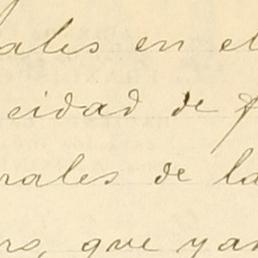 ales en el
cidad de
rales de la
que